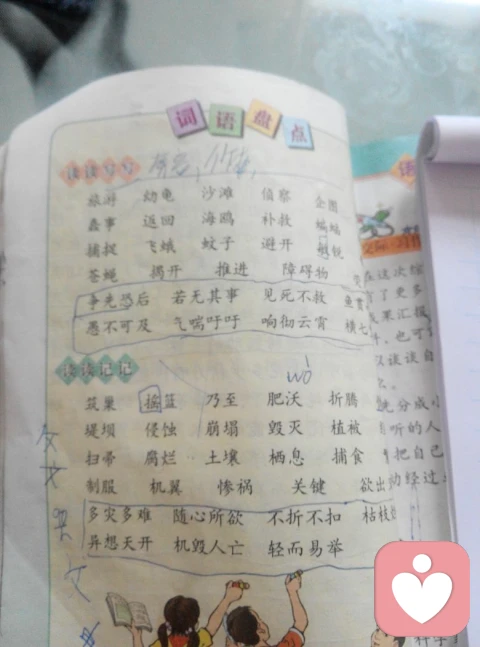 词语盘点
读读写写
旅游 幼龟 沙滩 侦察 企图
蠢事 返回 海鸥 补救 蝙蝠
捕捉 飞蛾 蚊子 避开 锐
苍蝇 揭开 推进 障碍物
争先恐后 若无其事 见死不救 鱼贯
愚不可及 气喘吁吁 响彻云霄 横七
读读记记
wò
筑巢 摇篮 乃至 肥沃 折腾
堤坝 侵蚀 崩塌 毁灭 植被
扫帚 腐烂 土壤 栖息 捕食
制服 机翼 惨祸 关键 欲出
多灾多难 随心所欲 不折不扣 枯枝
异想天开 机毁人亡 轻而易举
语
在这次综
了更多
果汇报
，也可
以谈谈自
先分成小
听的人
把自己
动经过